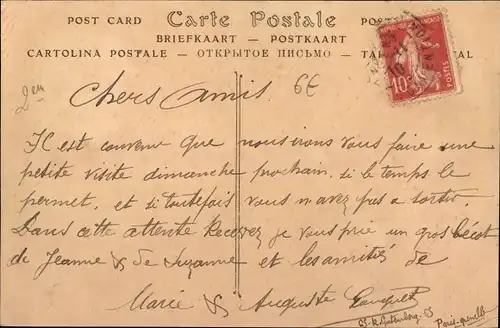 POST CARD Carte Postale
BRIEFKAART — POSTKAART
CARTOLINA POSTALE — ОТКРЫТОЕ ПИСЬМО —
10 POSTES
Chers Amis 6€
Il est convenu que nous irons vous faire une
petite visite dimanche prochain. si le temps le
permet. et si toutefois vous n'avez pas a sortir.
Dans cette attente Recevez je vous prie un gros bécot
de Jeanne & de Suzanne et les amitiés de
Marie & Auguste